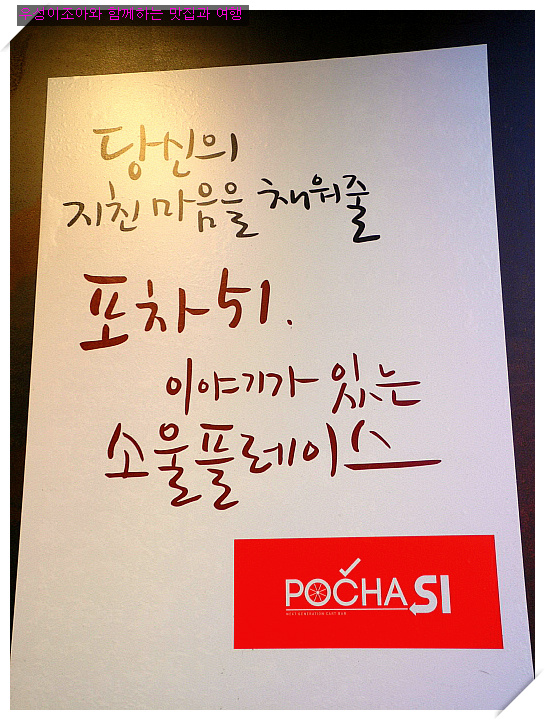 함께하는 맛집과 여행
당신의
지친 마음을 채워줄
포차 51.
이야기가 있는
소울플레이스
POCHA SI
NEXT GENERATION CART BAR